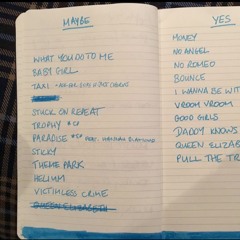 MAYBE
WHAT YOU DO TO ME
BABY GIRL
TAXI
STUCK ON REPEAT
TROPHY *EP
PARADISE *EP FEAT. HANNAH DIAMOND
STICKY
THEME PARK
HELIUM
VICTIMLESS CRIME
QUEEN ELIZABETH
YES
MONEY
NO ANGEL
NO ROMEO
BOUNCE
I WANNA BE WIT
VROOM VROOM
GOOD GIRLS
DADDY KNOWS
QUEEN ELIZAB
PULL THE TR